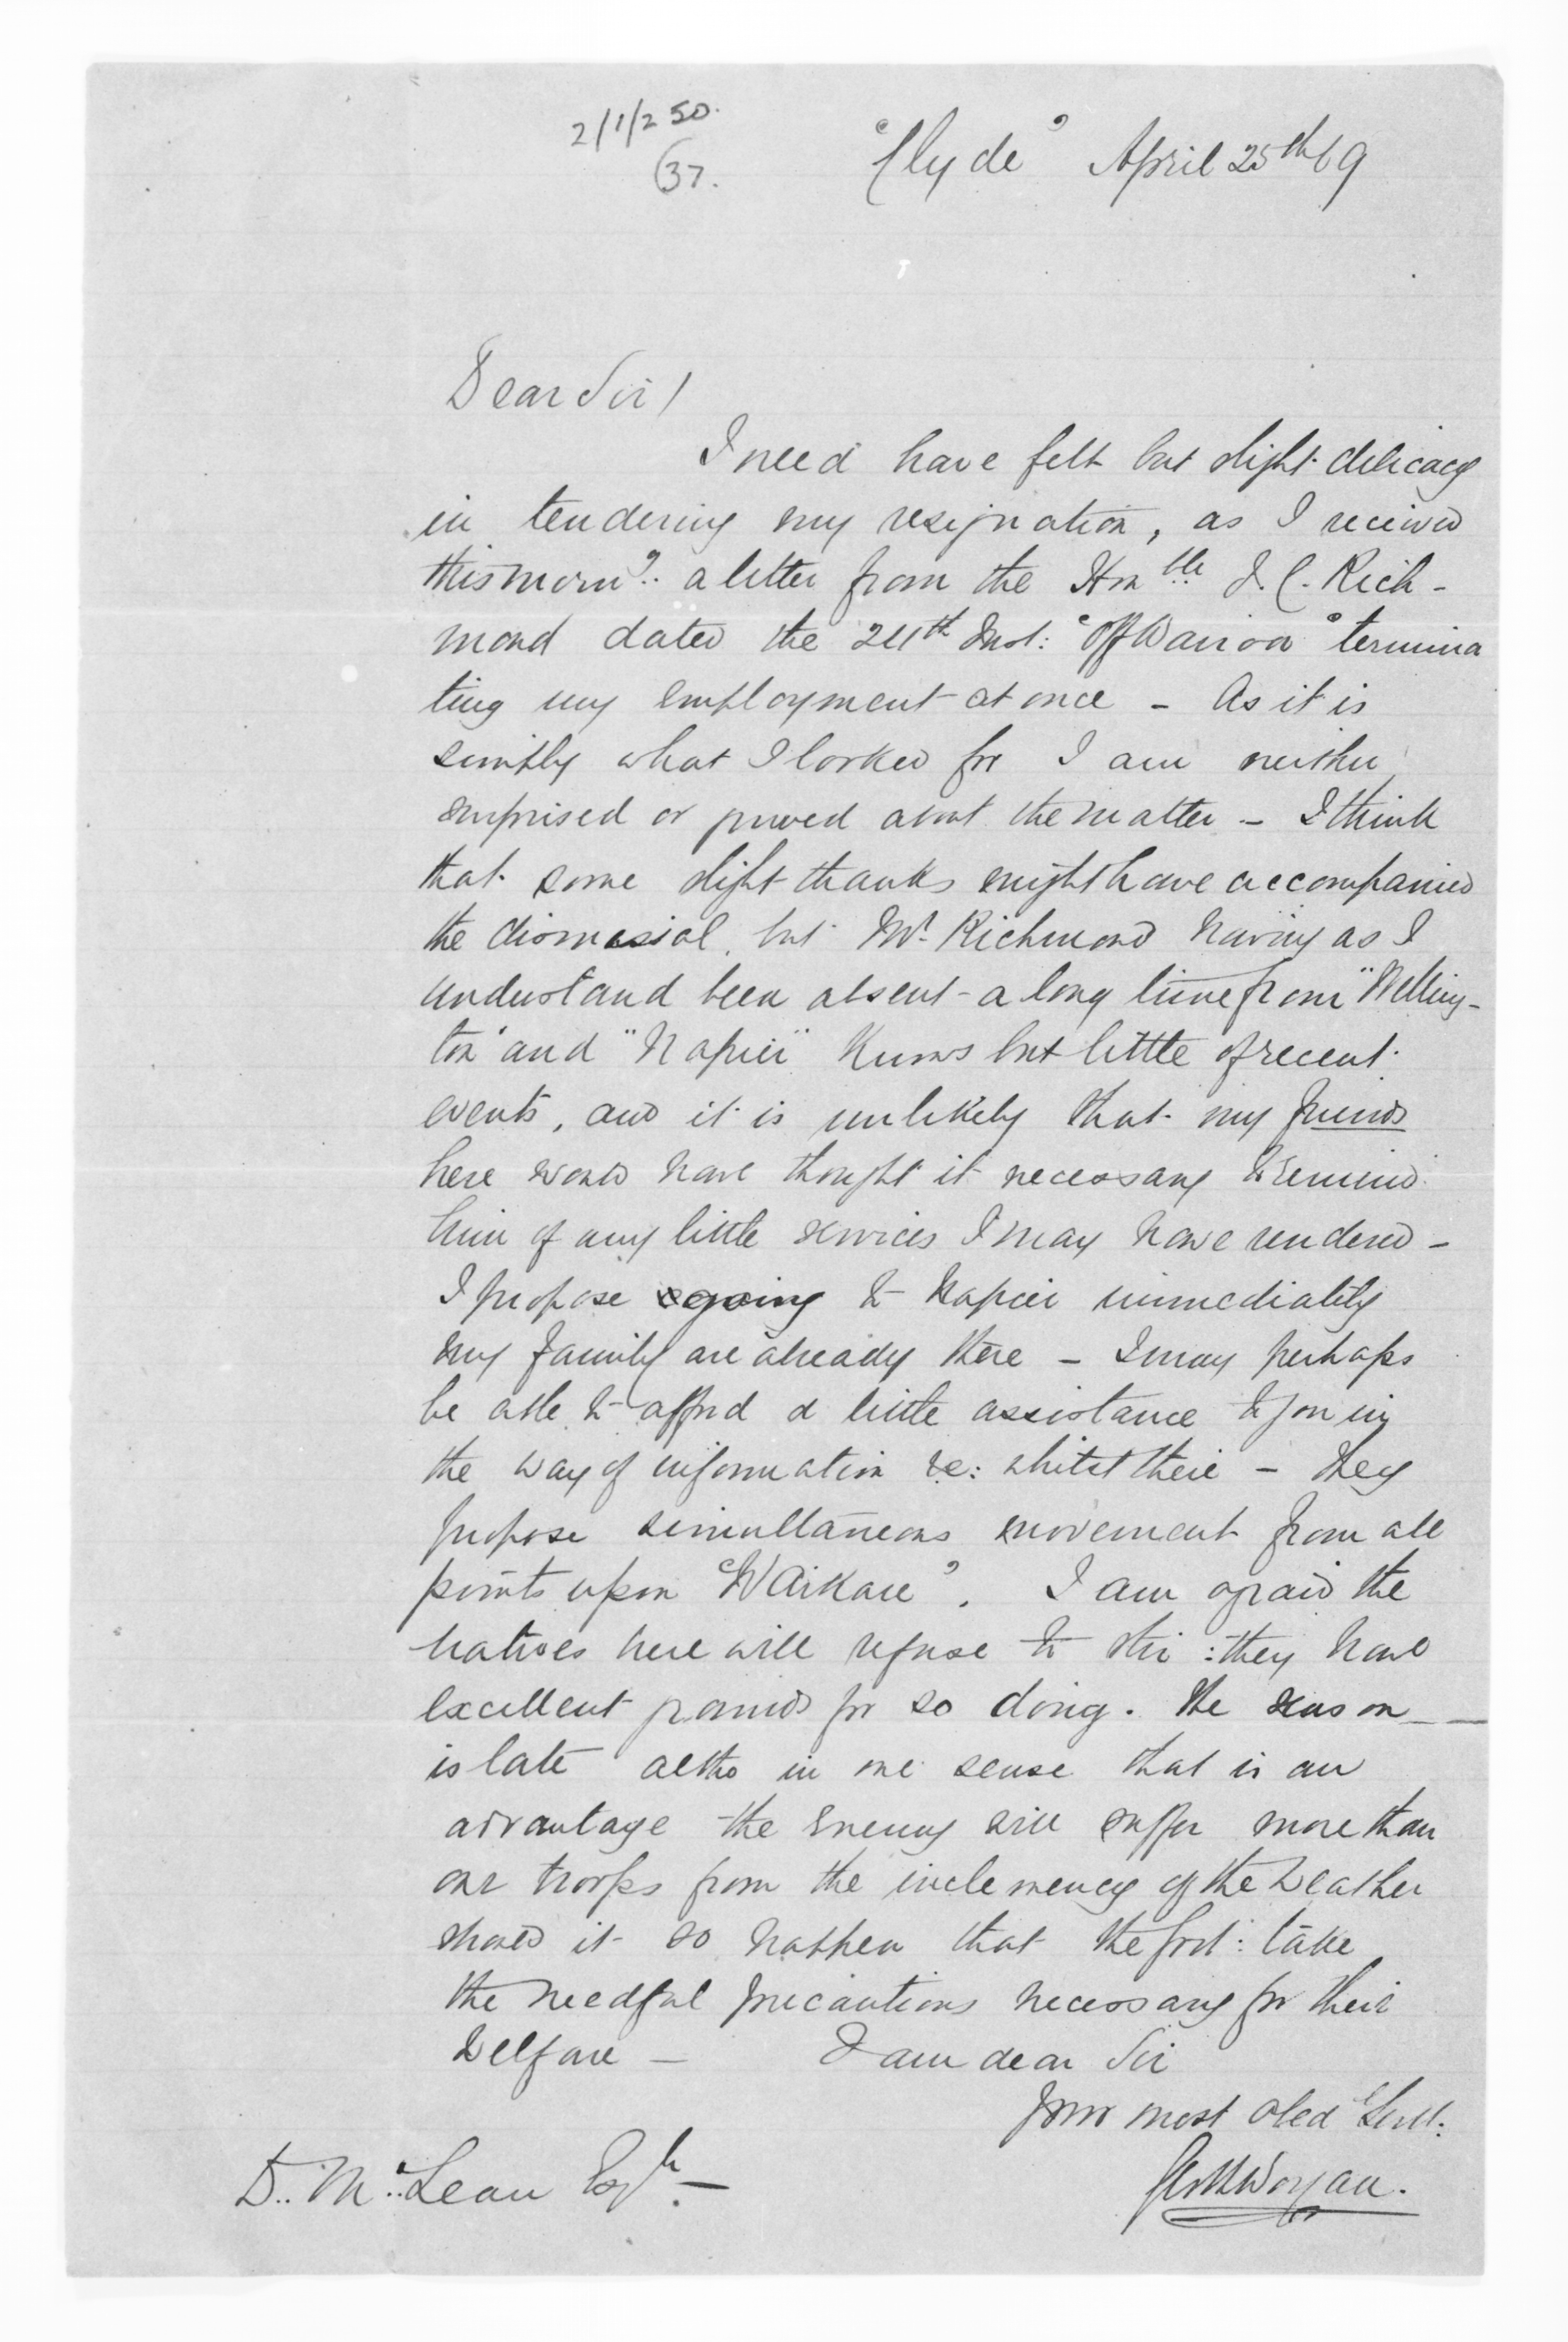 2/1/2 50.
37.
"Clyde" April 25th 69
Dear Sir/
I need have felt but slight delicacy
in tendering my resignation, as I received
this morng. a letter from the Honble J. C. Rich-
mond dated the 24th Inst: "Off Wairoa" termina
ting my employment at once - As it is
simply what I looked for I am neither
surprised or grieved about the matter - I think
that some slight thanks might have accompanied
the dismissial, but Mr. Richmond having as I
understand been absent a long time from "Welling-
ton" and "Napier" knows but little of recent
events, and it is unlikely that my friends
here would have thought it necessary to remind
him of any little services I may have rendered -
I propose going to Napier immediately
my family are already there - I may perhaps
be able to afford a little assistance to you in
the way of information &c: whilst there - They
propose simultaneous movement from all
points upon "Waikare". I am afraid the
natives here will refuse to stir : they have
excellent grounds for so doing. The season
is late altho in one sense that is an
advantage the enemy will suffer more than
our troops from the inclemency of the weather
should it so happen that the Govt: take
the needful precautions necessary for their
welfare - I am dear Sir
Your most obed Servt:
D. McLean Esqr -
Worgan.